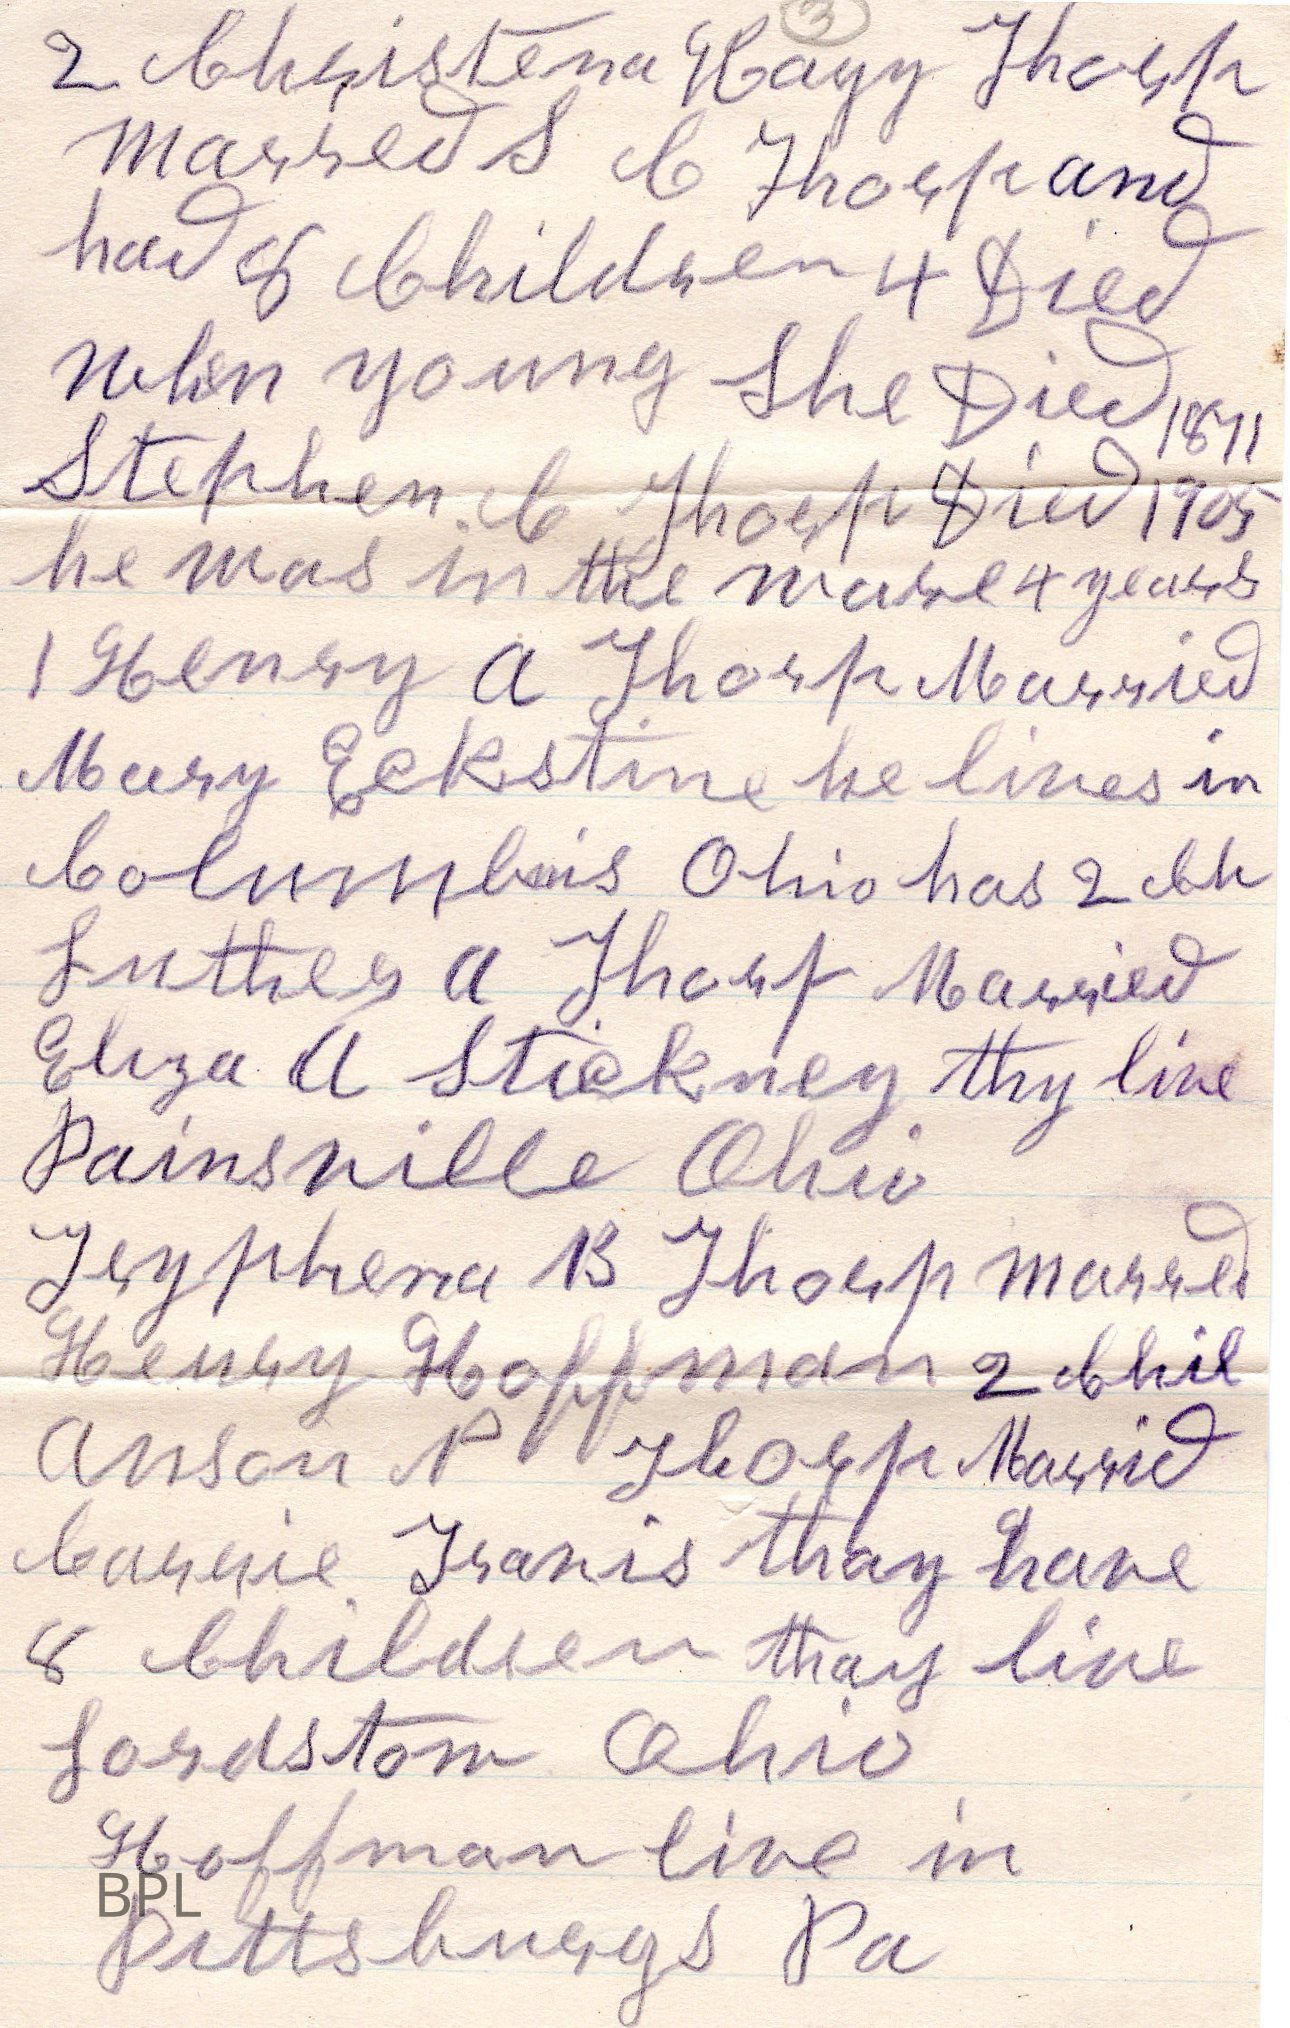 3
2 Christena Hagy Thorp
Marred S C Thorp and
had 8 Children 4 Died
When young She Died 1871
Stephen. C Thorp Died 1905
he was in the ware 4 years
1 Henry A Thorp Married
Mary Eckstine he lives in
Columbuis Ohio has 2 Ch
Luther A Thorp Married
Eliza A Stickney thy live
Painsville Ohio
Tryphena B Thorp Marred
Henry Hoffman 2 Chil
Anson P Thorp Marrid
Carrie Travis thay have
8 Children thay live
Lordstow Ohio
Hoffman live in
BPL
Pittsburgs Pa